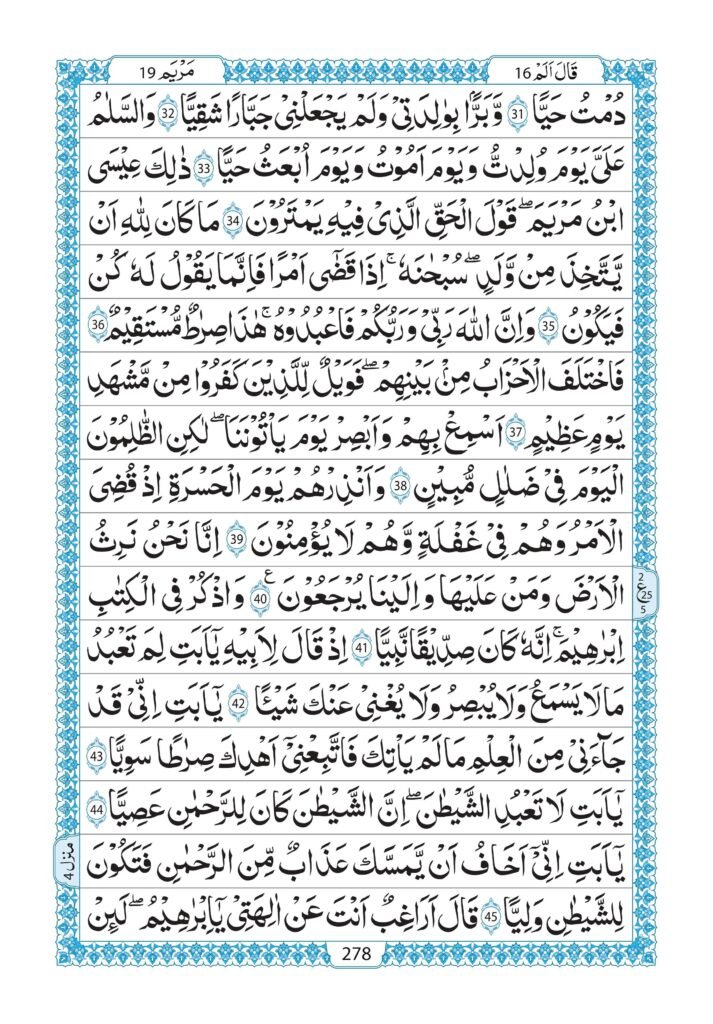 قَالَ اَلَمْ 16
مَرْيَم 19
دُمْتُ حَيًّا 31 وَّبَرًّۢا بِوَالِدَتِيْ وَلَمْ يَجْعَلْنِيْ جَبَّارًا شَقِيًّا 32 وَالسَّلٰمُ
عَلَيَّ يَوْمَ وُلِدْتُّ وَيَوْمَ اَمُوْتُ وَيَوْمَ اُبْعَثُ حَيًّا 33 ذٰلِكَ عِيْسَى
ابْنُ مَرْيَمَ ۖ قَوْلَ الْحَقِّ الَّذِيْ فِيْهِ يَمْتَرُوْنَ 34 مَا كَانَ لِلّٰهِ اَنْ
يَّتَّخِذَ مِنْ وَّلَدٍ ۖ سُبْحٰنَهٗ ۚ اِذَا قَضٰٓى اَمْرًا فَاِنَّمَا يَقُوْلُ لَهٗ كُنْ
فَيَكُوْنُ 35 وَاِنَّ اللّٰهَ رَبِّيْ وَرَبُّكُمْ فَاعْبُدُوْهُ ۚ هٰذَا صِرَاطٌ مُّسْتَقِيْمٌ 36
فَاخْتَلَفَ الْاَحْزَابُ مِنْۢ بَيْنِهِمْ ۖ فَوَيْلٌ لِّلَّذِيْنَ كَفَرُوْا مِنْ مَّشْهَدِ
يَوْمٍ عَظِيْمٍ 37 اَسْمِعْ بِهِمْ وَاَبْصِرْ يَوْمَ يَاْتُوْنَنَا ۖ لٰكِنِ الظّٰلِمُوْنَ
الْيَوْمَ فِيْ ضَلٰلٍ مُّبِيْنٍ 38 وَاَنْذِرْهُمْ يَوْمَ الْحَسْرَةِ اِذْ قُضِيَ
الْاَمْرُ وَهُمْ فِيْ غَفْلَةٍ وَّهُمْ لَا يُؤْمِنُوْنَ 39 اِنَّا نَحْنُ نَرِثُ
الْاَرْضَ وَمَنْ عَلَيْهَا وَاِلَيْنَا يُرْجَعُوْنَ ع 40 وَاذْكُرْ فِي الْكِتٰبِ
2 ع 25 5
اِبْرٰهِيْمَ ۚ اِنَّهٗ كَانَ صِدِّيْقًا نَّبِيًّا 41 اِذْ قَالَ لِاَبِيْهِ يٰٓاَبَتِ لِمَ تَعْبُدُ
مَا لَا يَسْمَعُ وَلَا يُبْصِرُ وَلَا يُغْنِيْ عَنْكَ شَيْـًٔا 42 يٰٓاَبَتِ اِنِّيْ قَدْ
جَآءَنِيْ مِنَ الْعِلْمِ مَا لَمْ يَاْتِكَ فَاتَّبِعْنِيْٓ اَهْدِكَ صِرَاطًا سَوِيًّا 43
يٰٓاَبَتِ لَا تَعْبُدِ الشَّيْطٰنَ ۖ اِنَّ الشَّيْطٰنَ كَانَ لِلرَّحْمٰنِ عَصِيًّا 44
يٰٓاَبَتِ اِنِّيْٓ اَخَافُ اَنْ يَّمَسَّكَ عَذَابٌ مِّنَ الرَّحْمٰنِ فَتَكُوْنَ
منزل 4
لِلشَّيْطٰنِ وَلِيًّا 45 قَالَ اَرَاغِبٌ اَنْتَ عَنْ اٰلِهَتِيْ يٰٓاِبْرٰهِيْمُ ۖ لَئِنْ
278